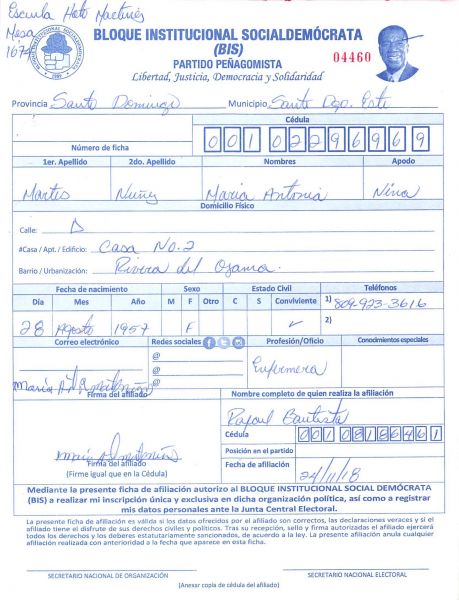 Escuela Hato
Mesa
BLOQUE INSTITUCIONAL SOCIALDEMÓCRATA
(BIS)
04460
PARTIDO PEÑAGOMISTA
Libertad, Justicia, Democracia y Solidaridad
Provincia Santo Domingo Municipio Santo Dgo. Este
Cédula
Número de ficha 001 0229696 9
1er. Apellido 2do. Apellido Nombres Apodo
Martes Nuñez Maria Antonia Nina
Domicilio Físico
Calle: D
#Casa / Apt. / Edificio: Casa No. 2
Barrio / Urbanización: Rivera del Ozama
Fecha de nacimiento Sexo Estado Civil Teléfonos
Día Mes Año M F Otro C S Conviviente 1) 809-923-3616
28 Agosto 1957 F ✓ 2)
Correo electrónico Redes sociales Profesión/Oficio Conocimientos especiales
@
@
@
Enfermera
Firma del afiliado
Nombre completo de quien realiza la afiliación
Rafael Bautista
Cédula 001 0818646 1
Posición en el partido
Firma del afiliado
(Firme igual que en la Cédula)
Fecha de afiliación 24/11/18
Mediante la presente ficha de afiliación autorizo al BLOQUE INSTITUCIONAL SOCIAL DEMÓCRATA
(BIS) a realizar mi inscripción única y exclusiva en dicha organización política, así como a registrar
mis datos personales ante la Junta Central Electoral.
La presente ficha de afiliación es válida si los datos ofrecidos por el afiliado son correctos, las declaraciones veraces y si el
afiliado tiene el disfrute de sus derechos civiles y políticos. Tras su recepción, sello y firma autorizados el afiliado ejercerá
todos los derechos y los deberes estatutariamente sancionados, de acuerdo a la ley. La presente afiliación anula cualquier
afiliación realizada con anterioridad a la fecha que aparece en esta ficha.
SECRETARIO NACIONAL DE ORGANIZACIÓN SECRETARIO NACIONAL ELECTORAL
(Anexar copia de cédula del afiliado)